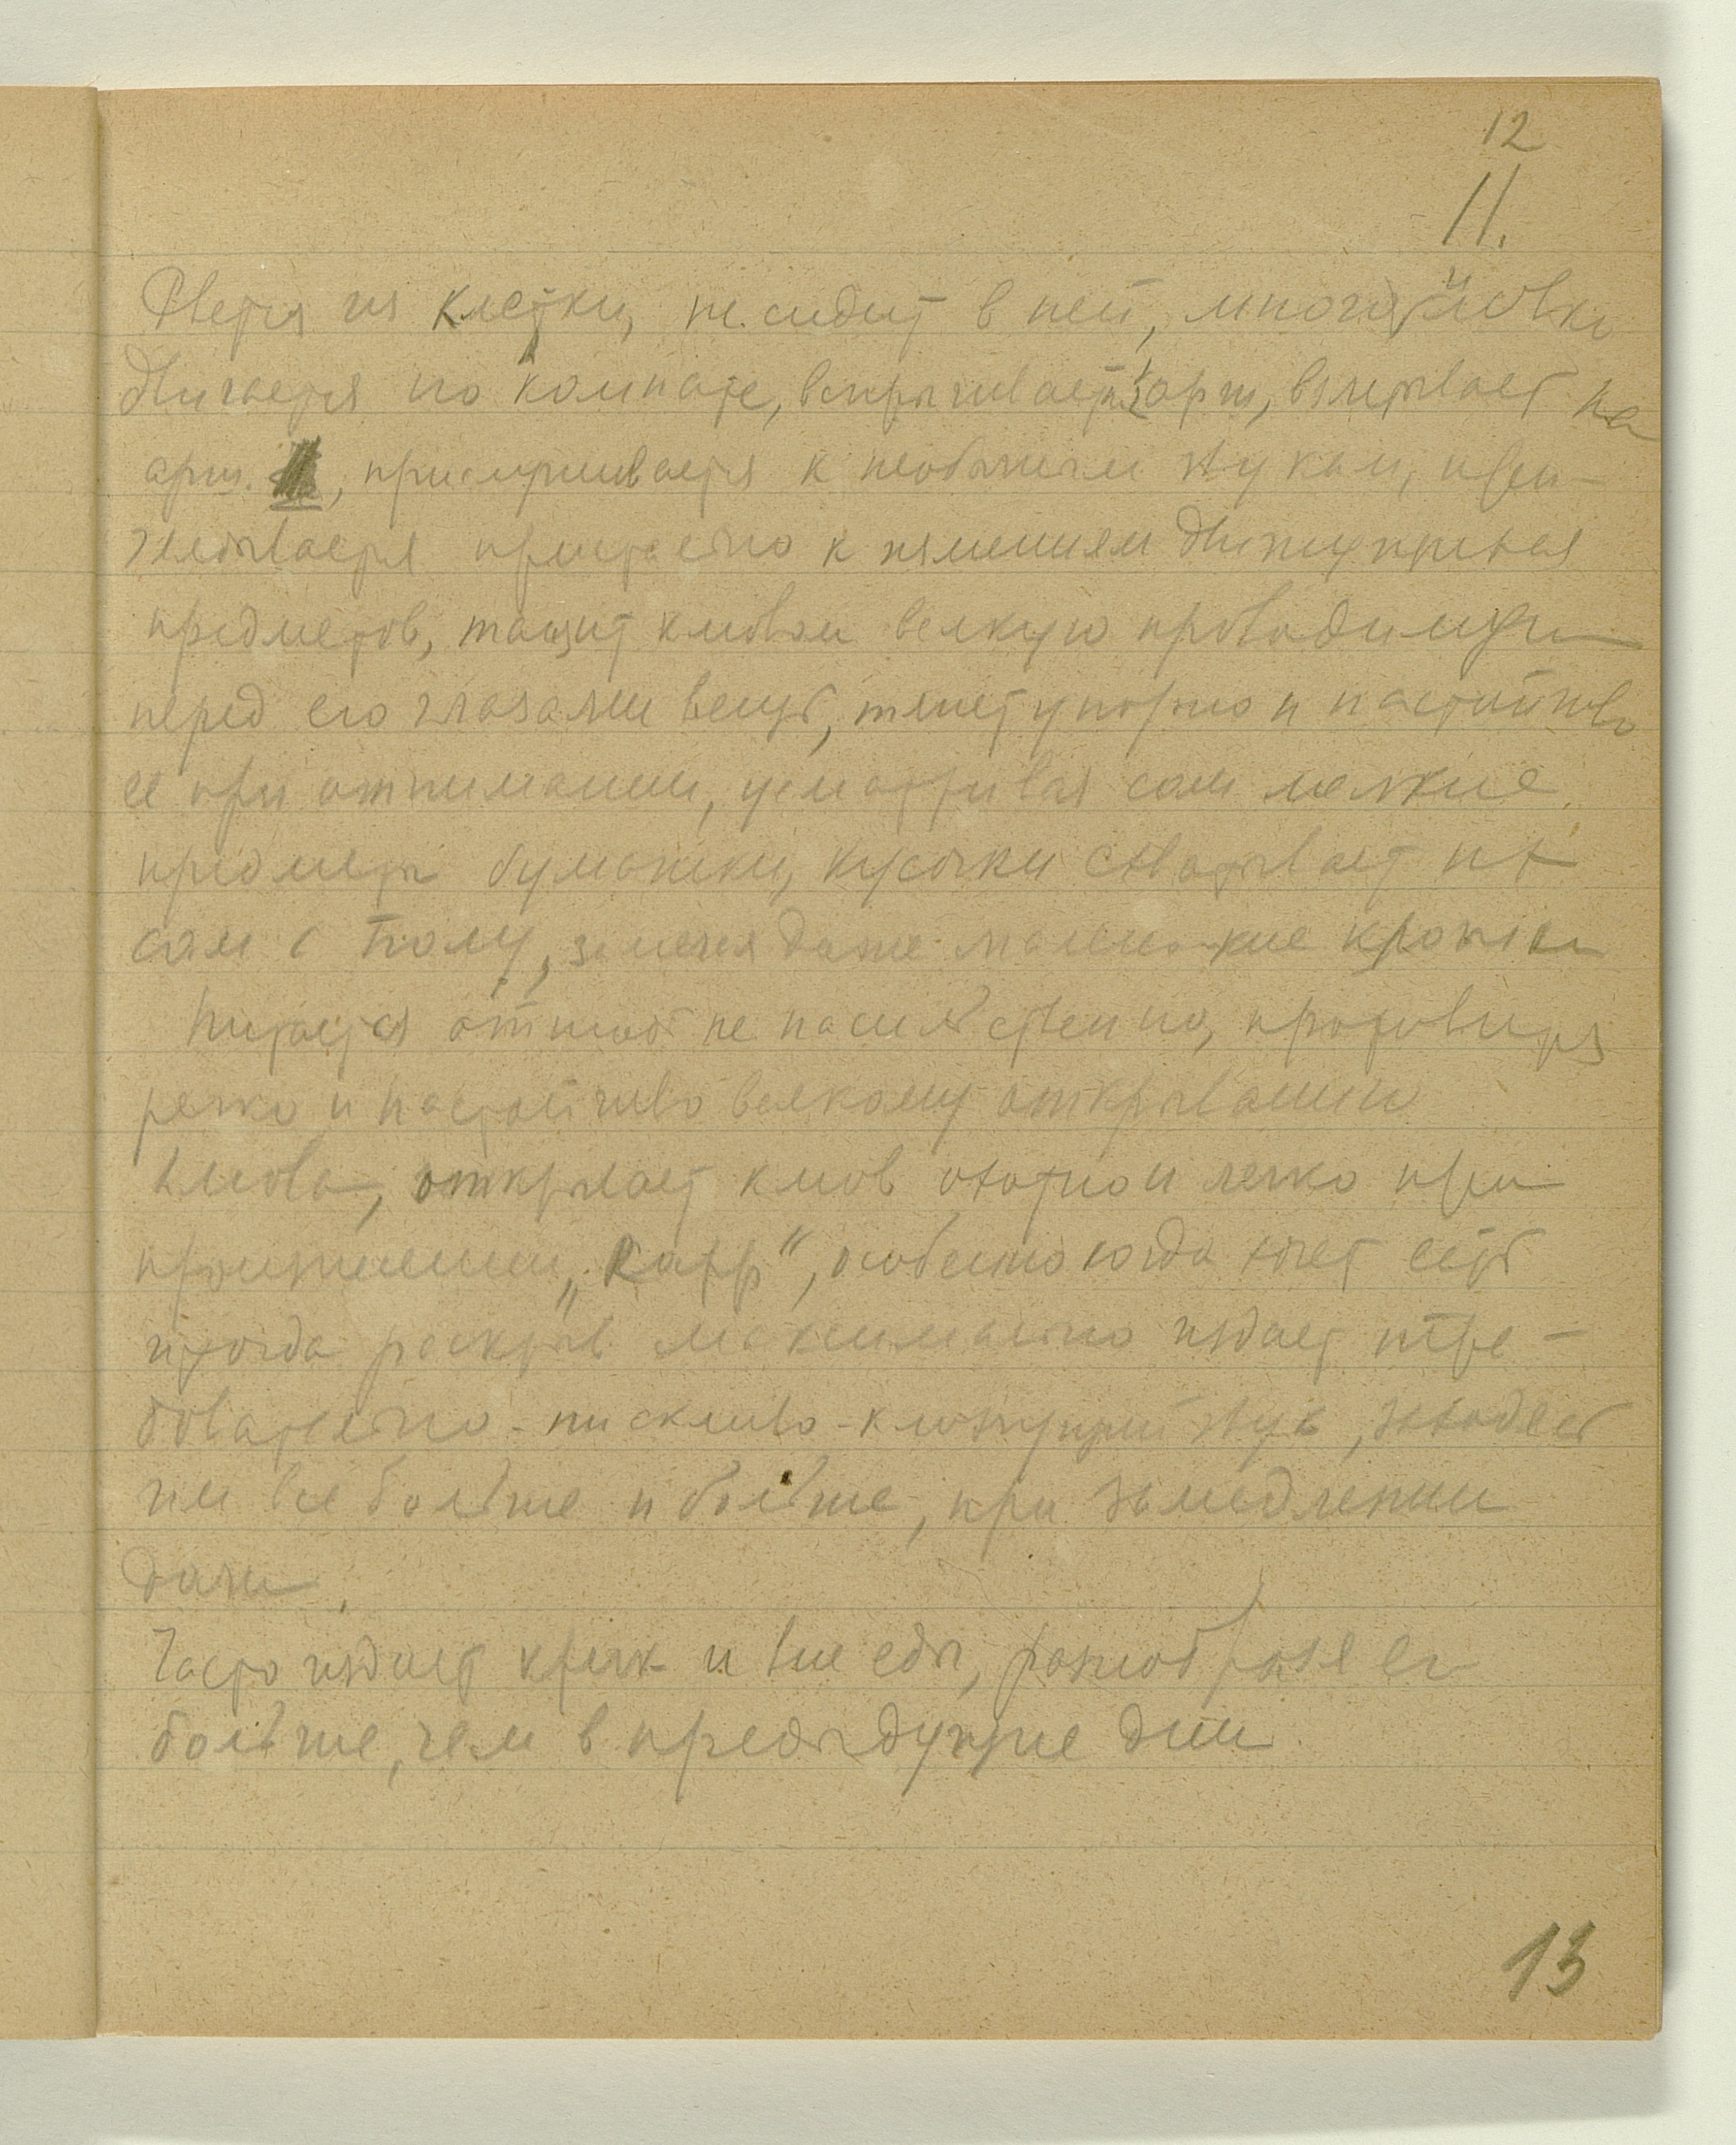 12
11.
Рвется из клетки, не сидит в ней, много и ловко
двигается по комнате, вспрыгивает арш, взлетывает на
арш. , прислушивается к необычным звукам, пригля-
дывается пристально к движущихся
предметов, тащит клювом всякую проводимую
перед его глазами вещь, тянет упорно и настойчиво
ее при отнимании, усматривая сам мелкие
предметы бумажки, кусочки схватывает их
сам с полу, замечая даже маленькие крошки
Питается отнюдь не насильственно, противится
резко и настойчиво всякому открыванию
клюва, открывает клюв охотно и легко при
произнесении „Карр", особенно когда хочет есть
и тогда раскрыв максимально издает тре-
бовательно-пискливо-клокчущий звук,
им все больше и больше, при замедлении
дачи.
Часто издает крик и вне еды, разнообразя его
больше, чем в предыдущие дни
13